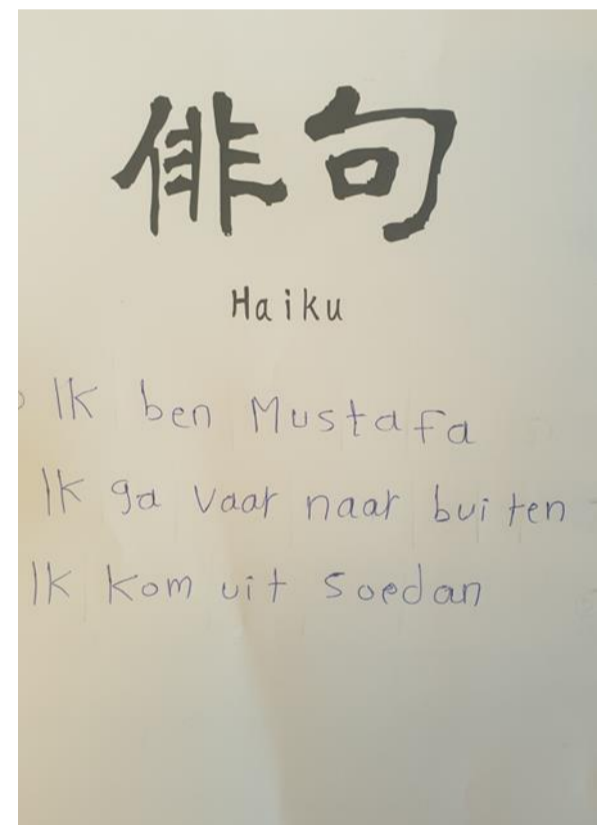 俳句
Haiku
Ik ben Mustafa
Ik ga vaar naar buiten
Ik kom uit Soedan